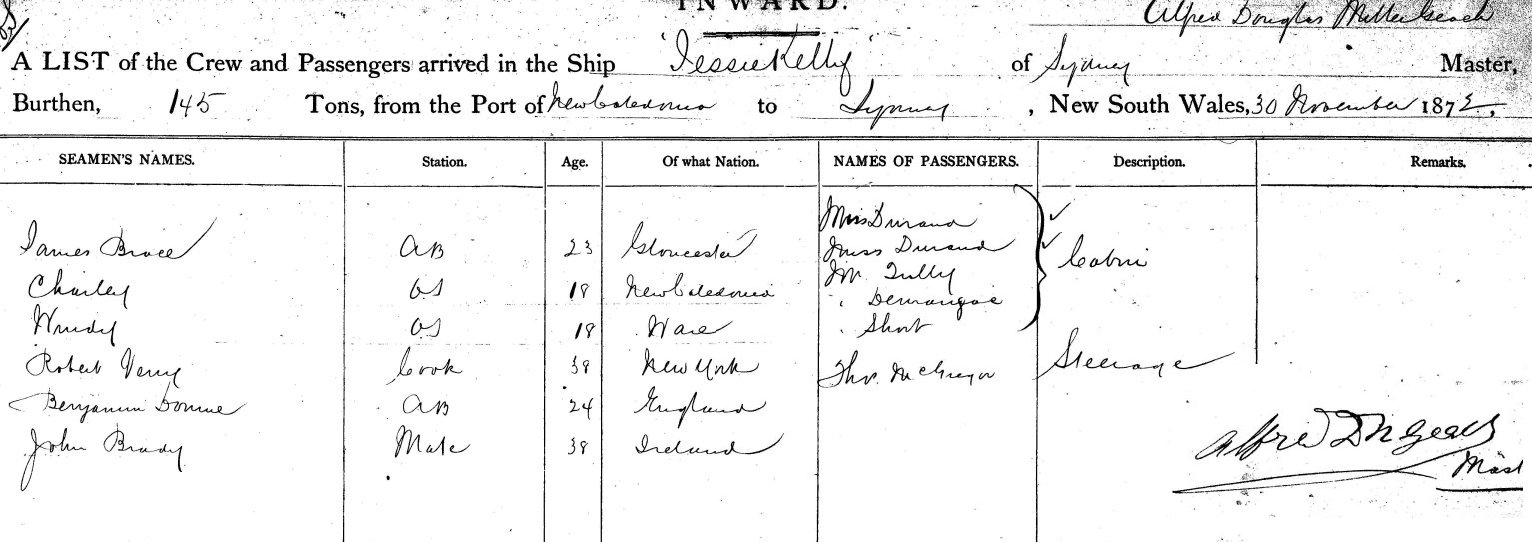 INWARD.
Alfred Douglas Miller Geach
A LIST of the Crew and Passengers arrived in the Ship "Jessie Kelly" of Sydney Master,
Burthen, 145 Tons, from the Port of New Caledonia to Sydney, New South Wales, 30 November 1872,
SEAMEN'S NAMES. Station. Age. Of what Nation. NAMES OF PASSENGERS. Description. Remarks.
Mrs Durand
James Brace AB 23 Gloucester Miss Durand Cabin
Charley OS 18 New Caledonia Mr. Tully
" Demangae
OS 18 Mare " Short
Robert Cook 38 New York Thos. McGregor Steerage
Benjamin AB 24 England
John Brady Mate 38 Ireland
Alfred D M Geach
Mast